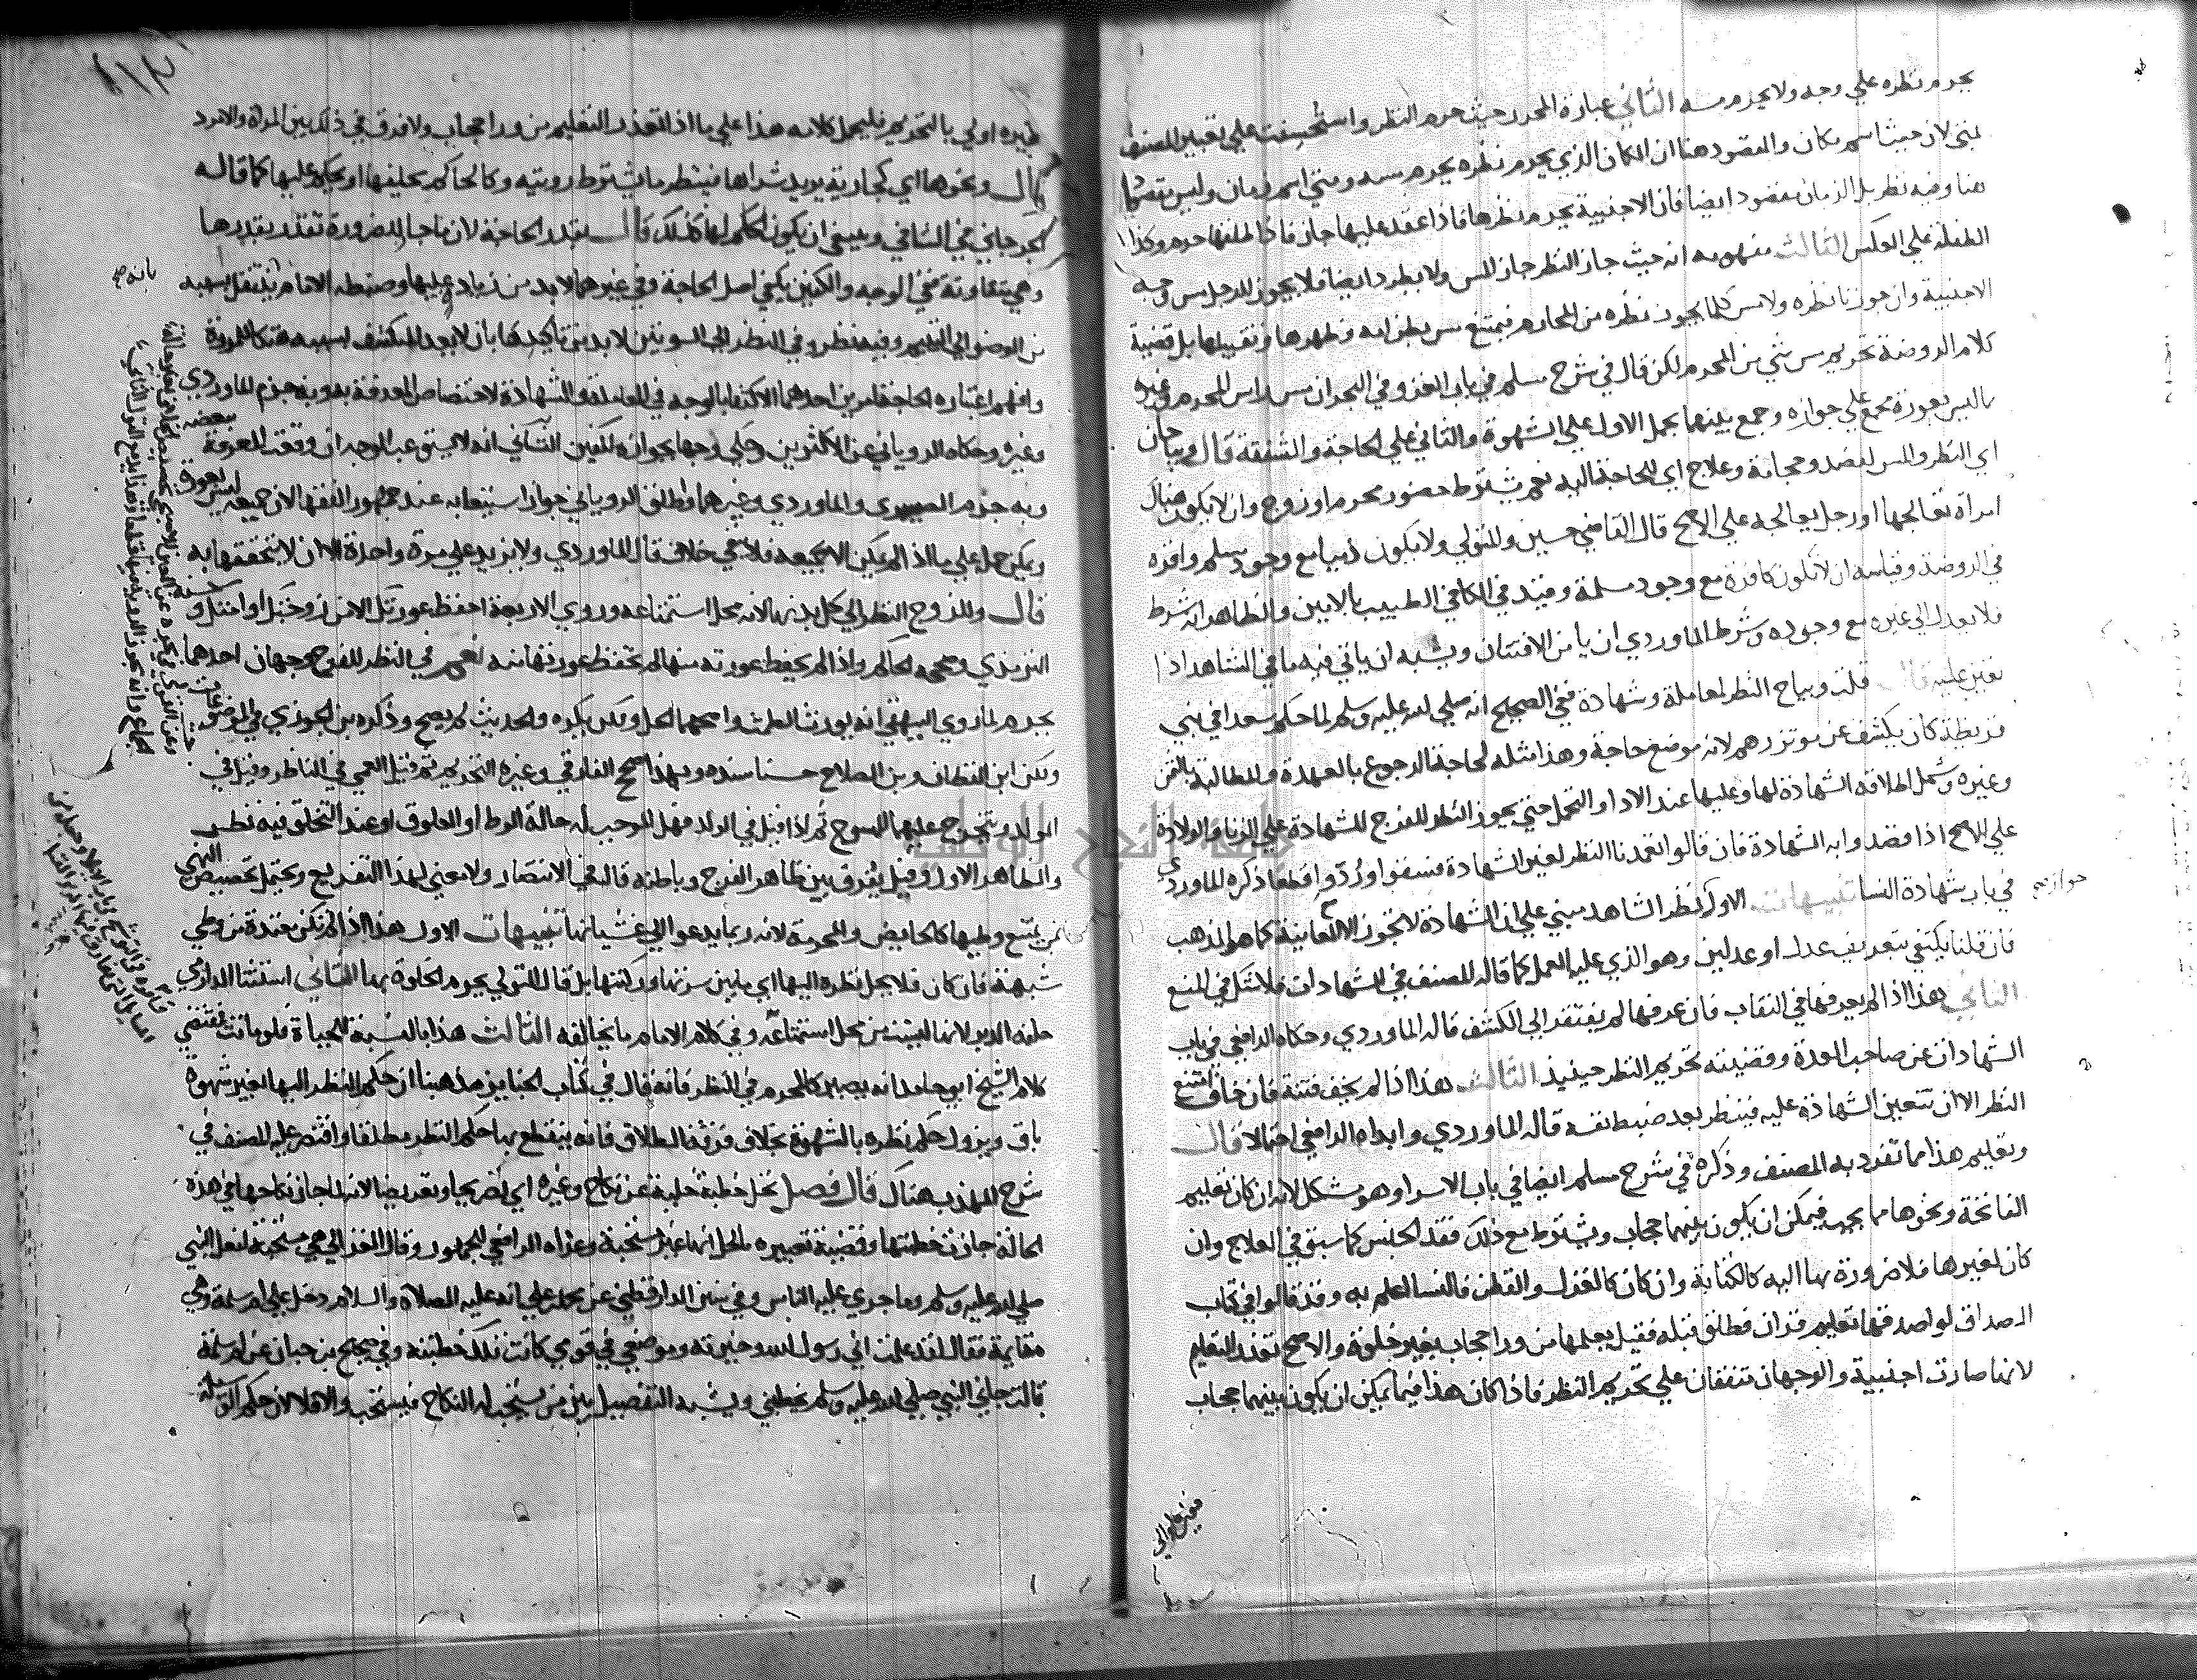 يحرم نظره علي وجه ولا يحرم مسه الثاني عبارة المحرر حيث حرم النظر واستحسنت علي تعبير المصنف
بمتي لان حيث اسم مكان والمقصود هنا ان المكان الذي يحرم نظره يحرم مسه ومتي اسم زمان وليس مقصودا
هنا وفيه نظر بل الزمان مقصود ايضا فان الاجنبية يحرم نظرها فاذا عقد عليها جاز فاذا طلقها حرم وكذا
الطفلة علي العكس الثالث مفهومه انه حيث جاز النظر جاز المس ولا يطرد ايضا فلا يجوز للرجل مس وجه
الاجنبية وان جوزنا نظره ولا مس كلما يجوز نظره من المحارم فيمتنع مس بطن امه وظهرها وتقبيلها بل قضية
كلام الروضة تحريم مس شي من المحرم لكن قال في شرح مسلم في باب الغزو في البحر ان مس راس المحرم وغيره
مما ليس بعورة مجمع علي جوازه وجمع بينهما بحمل الاول علي الشهوة والثاني علي الحاجة والشفقة قال ويباحان
اي النظر والمس لفصد وحجامة وعلاج اي للحاجة اليه نعم يشترط حضور محرم او زوج وان لا يكون هناك
امراة تعالجها او رجل يعالجه علي الاصح قال القاضي حسين والمتولي ولا يكون ذميا مع وجود مسلم واقره
في الروضة وقياسه ان لا تكون كافرة مع وجود مسلمة وقيد في الكافي الطبيب بالامين والظاهر انه شرط
فلا يعدل الي غيره مع وجوده وشرط الماوردي ان يامن الافتتان ويشبه ان ياتي فيه ما في الشاهد اذا
تعين عليه قال قلت ويباح النظر لمعاملة وشهادة ففي الصحيح انه صلي الله عليه وسلم لما حكم سعدا في بني
قريظة كان يكشف عن موتزرهم لانه موضع حاجة وهذا مثله لحاجة الرجوع بالعهدة والمطالبة بالثمن
وغيره وشمل اطلاقه الشهادة لها وعليها عند الادا او التحمل حتي يجوز النظر للفرج للشهادة علي الزنا والولادة
علي الاصح اذا قصدوا به الشهادة فان قالوا تعمدنا النظر لغير الشهادة فسقوا وردوا قطعا ذكره الماوردي
في باب شهادة النسا تنبيهات الاول نظر الشاهد مبني علي ان الشهادة لا تجوز الا بمعاينة كما هو المذهب
فان قلنا يكتفي بتعريف عدل او عدلين وهو الذي عليه العمل كما قاله المصنف في الشهادات فلا شك في المنع
الثاني هذا اذا لم يعرفها في النقاب فان عرفها لم يفتقر الي الكشف قاله الماوردي وحكاه الرافعي في باب
الشهادات عن صاحب العدة وقضيته تحريم النظر حينيذ الثالث هذا اذا لم يخف فتنة فان خاف امتنع
النظر الا ان تتعين الشهادة عليه فينظر بعد ضبط نفسه قاله الماوردي وابداه الرافعي احتمالا قال
وتعليم هذا مما تفرد به المصنف وذكره في شرح مسلم ايضا في باب الاسرا وهو مشكل لانه ان كان تعليم
الفاتحة ونحوها مما يجب فيمكن ان يكون بينهما حجاب ويشترط مع ذلك فقد الجنس كما سبق في العلاج وان
كان لغيرها فلا ضرورة بها اليه كالكتابة وان كان كالغزل والقطن فالنسا اعلم به وقد قالوا في كتاب
الصداق لو اصدقها تعليم قران فطلق قبله فقيل يعلمها من ورا حجاب بغير خلوة والاصح تعذر التعليم
لانها صارت اجنبية والوجهان متفقان علي تحريم النظر فاذا كان هذا فيما يمكن ان يكون بينهما حجاب
فغيره اولي
جوازه
غيره اولي بالتحريم فليحمل كلامه هذا علي ما اذا تعذر التعليم من ورا حجاب ولا فرق في ذلك بين المراة والامرد
قال ونحوها اي كجارية يريد شراها فينظر ما يشترط رويته وكالحاكم يحلفها او يحكم عليها كما قاله
الجرجاني في الشافي وينبغي ان يكون الحكم لها كذلك قال بقدر الحاجة لان ما جاز للضرورة تقدر بقدرها
وهي متفاوتة ففي الوجه والكفين يكفي اصل الحاجة وفي غيرهما لابد من زيادة عليها وضبطه الامام بالتنقل بسببه
من الوضو الي التيمم وفيه نظر وفي النظر الي السوتين لابد من تاكيدها بان لا يعد التكشف بسببه هتكا للمروة
وافهم اعتباره الحاجة امرين احدهما الاكتفا بالوجه في المعاملة والشهادة لاختصاص المعرفة به وبه جزم الماوردي
وغيره وحكاه الروياني عن الاكثرين وحكي وجها بجوازه للكفين الثاني انه لا يستوعب الوجه ان وقعت المعرفة ببعضه
وبه جزم الصيمري والماوردي وغيرهما واطلق الروياني جواز استيعابه عند جمهور الفقها لان جميعه ليس بعورة
ويمكن حمله علي ما اذا لم يمكن الا بجميعه فلا يبقي خلاف قال الماوردي ولا يزيد علي مرة واحدة الا ان لا يتحققها به
قال وللزوج النظر الي كل بدنها لانه محل استمتاعه وروي الاربعة احفظ عورتك الا من زوجتك او امتك وحسنه
الترمذي وصححه الحاكم واذا لم يحفظ عورته منها لم تحفظ عورتها منه نعم في النظر للفرج وجهان احدهما
يحرم لما روي البيهقي انه يورث الطمث واصحهما الحل ولكن يكره والحديث لم يصح وذكره ابن الجوزي في الموضوعات
ولكن ابن القطان وبن الصلاح حسنا سنده وبهذا صحح الفارقي وغيره التحريم ثم قيل العمي في الناظر وقيل في
الولد ويتخرج عليهما المسوح ثم اذا قيل في الولد فهل الموجب له حالة الوطا والعلوق او عند التخلق فيه نظر
والظاهر الاول وقيل يفرق بين ظاهر الفرج وباطنه قاله في الانتصار ولا معني لهذا التفريع ويحتمل تخصيص النهي
بمن يمتنع وطيها كالحايض والمحرمة لانه ربما يدعوا الي غشيانها تنبيهات الاول هذا اذا لم تكن معتدة من وطي
شبهة فان كان فلا يحل نظره اليها اي ما بين سرتها وركبتها بل قال المتولي يحرم الخلوة بها الثاني استثنا الدارمي
حلقه الدبر لانها ليست من محل استمتاعه وفي كلام الامام ما يخالفه الثالث هذا بالنسبة للحياة فلو ماتت فمقتضي
كلام الشيخ ابو حامد انه يصير كالمحرم في النظر فانه قال في كتاب الجنايز مذهبنا ان حكم النظر اليها بغير شهوة
باق ويزول حكم نظره بالشهوة بخلاف فرقة الطلاق فانه ينقطع بها حكم النظر مطلقا واقتصر عليه المصنف في
شرح المهذب هناك قال فصل تحل خطبة خلية عن نكاح وغيره اي تصريحا وتعريضا لانه لما جاز نكاحها في هذه
الحالة جازت خطبتها وقضية تعبيره بالحل انها غير مستحبة وعزاه الرافعي للجمهور وقال الغزالي هي مستحبة لفعل النبي
صلي الله عليه وسلم وما جري عليه الناس وفي سنن الدارقطني عن محمد بن علي انه عليه الصلاة والسلام دخل علي ام سلمة وهي
متايمة فقال لقد علمت اني رسول الله وخيرته وموضعي في قومي كانت تلك خطبته وفي صحيح بن حبان عن ام سلمة
قالت جاني النبي صلي الله عليه وسلم يخطبني ويشبه التفصيل بين من يستحب له النكاح فيستحب والا فلا لان حكم الوسيلة